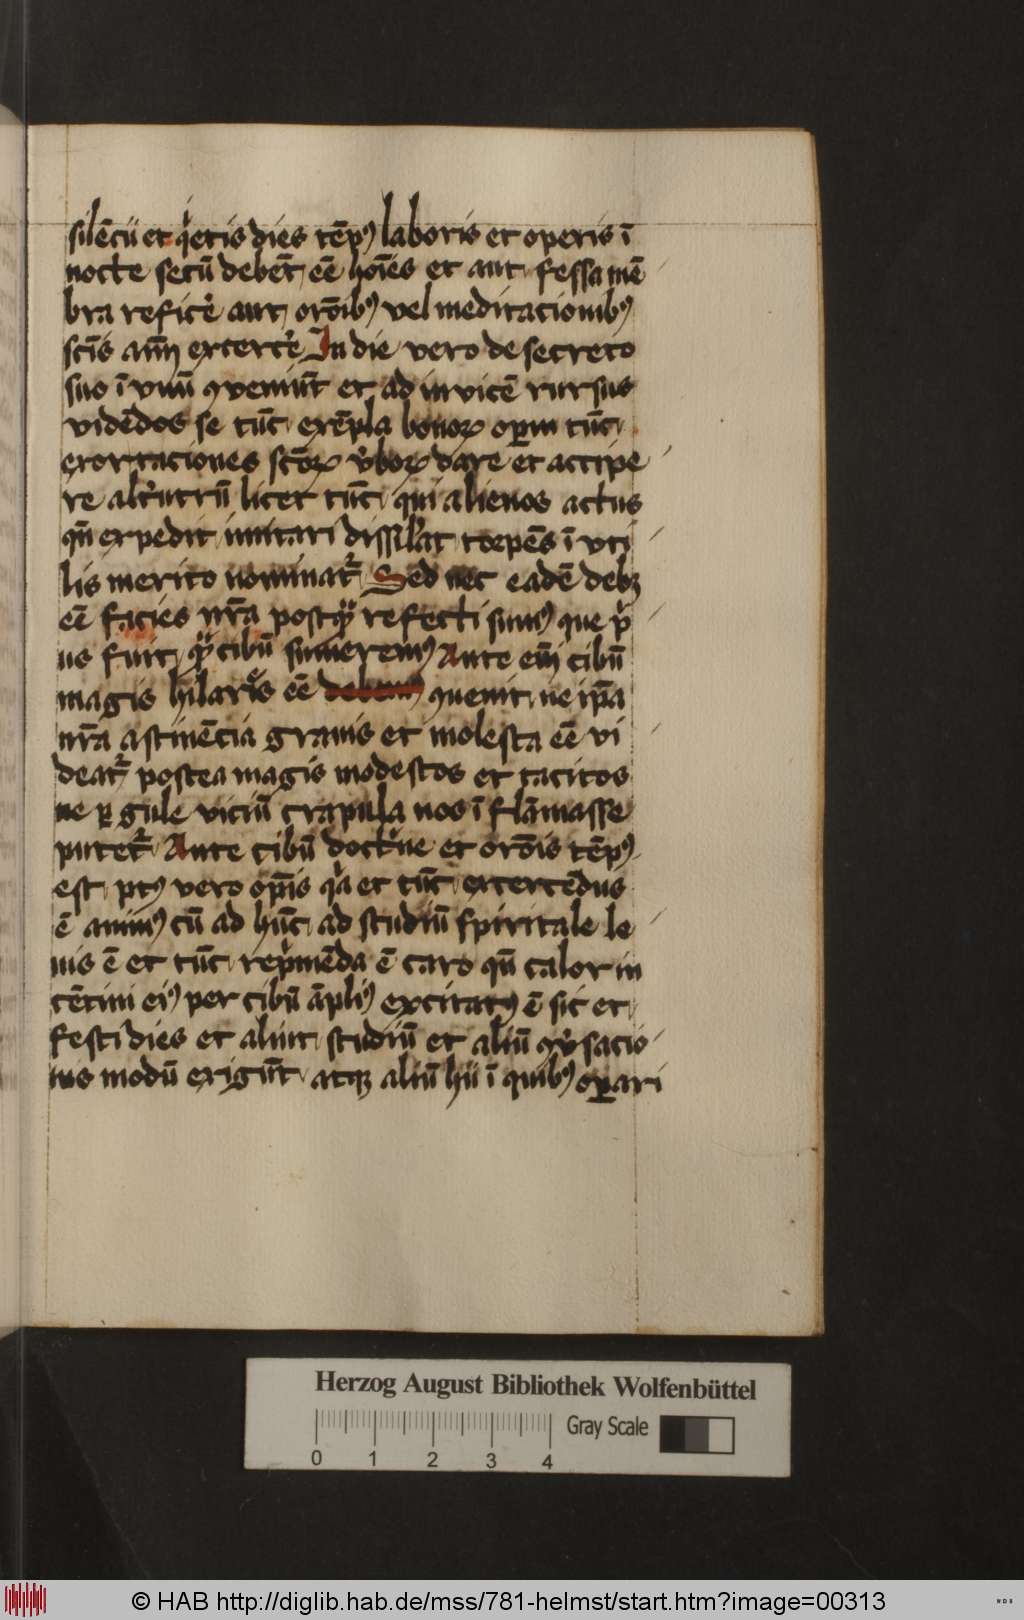 silēcii et qͥetis dies tēpꝰ laboris et operis ī
nocte secū debēt eē hoīes et aut fessa mē
bra reficẽ aut orōibꝰ vel meditacionibꝰ
scīs aīm excercẽ In die vero de secreto
suo ī vnū ꝯveniūt et ad invicē rursus
vidēdos se tūc exēpla bonoꝝ opꝑm tūc
exortaciones scōꝝ v̾boꝝ dare et accipe
re alt̾utrū licet tūc qui alienos actus
qn̄ expedit imitari dissil̾at tepēs ī vti
lis merito nominat᷑ Sed nec eadē debꝫ
eē facies nr̄a postqͣ refecti sumꝰ que pͥ
us fuit qͣ cibū sumeremꝰ Ante em̄ cibū
magis hilarẽs eē debemꝰ ꝯuenit ne ip̄a
nr̄a astinēcia grauis et molesta eē vi
deat᷑ postea magis modestos et tacitos
ne ꝑ gule viciū crapula nos īflāmasse
putet᷑ Ante cibū doct̾ne et orōis tēpꝰ
est ptꝰ vero op̄is qͥa et tūc excercēdus
ē animꝰ cū ad hūc ad studiū spiritale le
uis ē et tūc rep̾mēda ē caro qn̄ calor in
cētiui eiꝰ per cibū āpliꝰ excitatꝰ ē sic et
festi dies et aliut studiū et aliū ꝯv̾sacio
nis modū exigūt atqꝫ aliū hii ī quibꝰ oꝑari
Herzog August Bibliothek Wolfenbüttel
0 1 2 3 4
Gray Scale
© HAB http://diglib.hab.de/mss/781-helmst/start.htm?image=00313